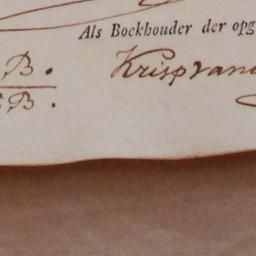 Als Boekhouder der opg
B. Krispvan
B.